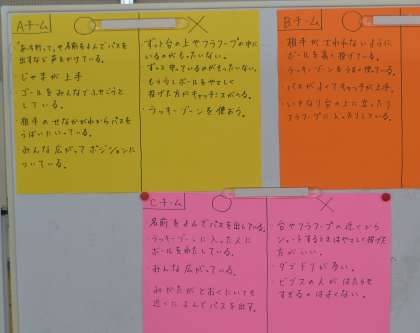 Aチーム ○ ×
"あそボ"って。や名前をよんでパスを
出すなど声をかけている。
・じゃすが上手
・ゴールをみんなでふせごうと
している。
・相手のせなかがわからパスを
うばいにいっている。
・みんな広がってポジションに
ついている。
・ずっと台の上やフラフープの中に
いるのがもったいない。
・ずっと守っているのがもったいない。
・もう少しボールをやさしく
投げた方がキャッチミスがへる。
・ラッキーゾーンを使おう。
Bチーム ○
・相手がとれないように
ボールを高く投げている。
・ラッキーゾーンをうまく使っている。
・パスがよくてキャッチが上手。
・いきなり台の上に立ったり
フラフープに入ったりしている。
Cチーム ○ ×
・名前をよんでパスを出している。
・ラッキーゾーンに入った人に
ボールをわたしている。
・みんな広がっている。
・みかたがとおくにいても
近くによんでパスを出す。
・台やフラフープの近くから
シュートするときはやさしく投げた
方がいい。
・ダブドリが多い。
・ビブスの人がはたらき
すぎるのはよくない。